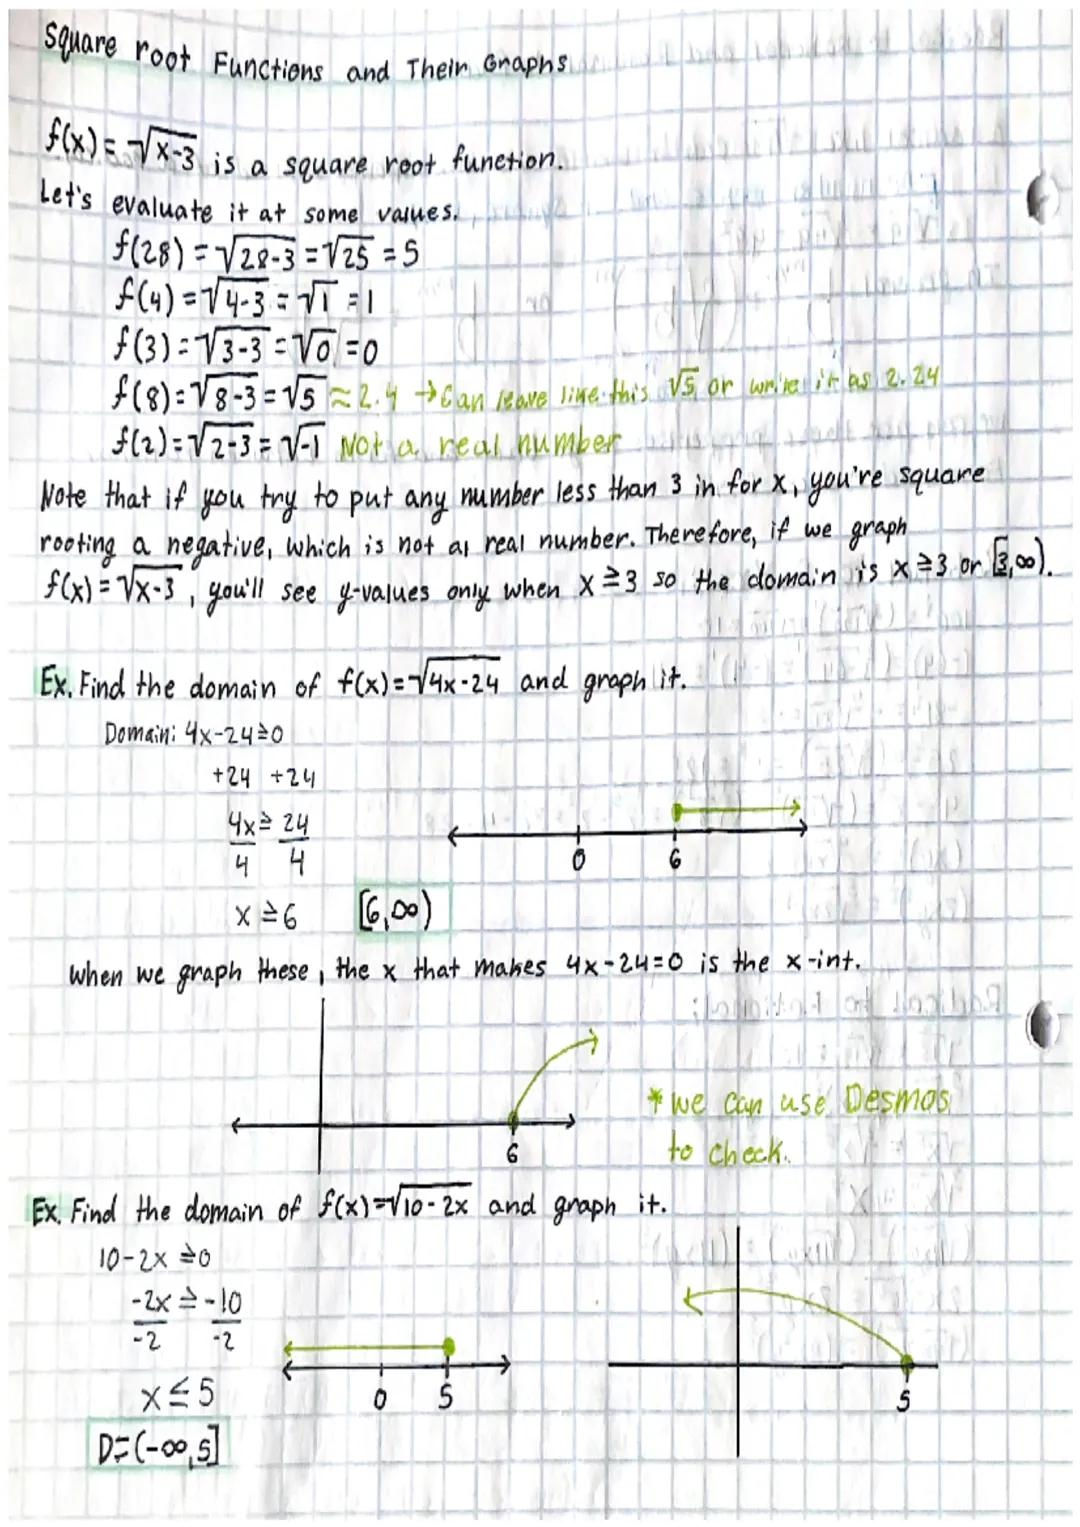 Square root Functions and Their Graphs
f(x) = √x-3 is a square root function.
Let's evaluate it at some values.
f(28) = √28-3 = √25 = 5
f(4) = √4-3 = √1 = 1
f(3) = √3-3 = √0 = 0
f(8) = √8-3 = √5 ≈ 2.4 → Can leave like this √5 or write it as 2.24
f(2) = √2-3 = √-1 Not a real number
Note that if you try to put any number less than 3 in for x, you're square
rooting a negative, which is not a real number. Therefore, if we graph
f(x) = √x-3, you'll see y-values only when x ≥ 3 so the domain is x ≥ 3 or [3,∞).
Ex. Find the domain of f(x) = √4x-24 and graph it.
Domain: 4x-24 ≥ 0
+24 +24
4x ≥ 24
4 4
0 6
x ≥ 6 [6,∞)
when we graph these, the x that makes 4x-24=0 is the x-int.
6
* we can use Desmos
to check.
Ex. Find the domain of f(x) = √10-2x and graph it.
10-2x ≥ 0
-2x ≥ -10
-2 -2
x ≤ 5
0 5
5
D = (-∞,5]